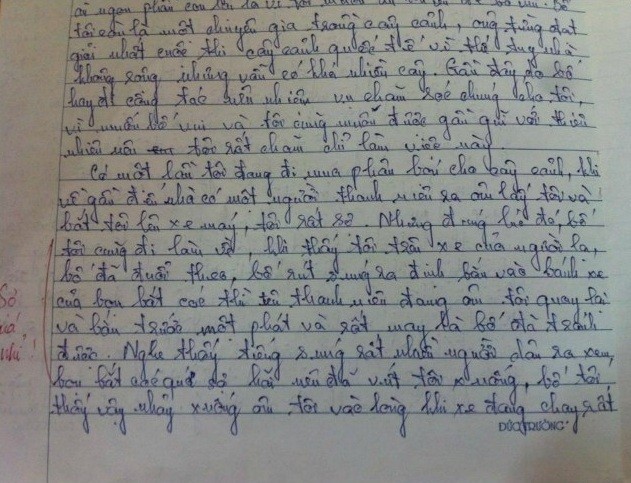 tôi còn là một chuyên gia trồng cây cảnh, ông từng đạt
giải nhất cuộc thi cây cảnh quốc tế vì thế tuy nhà
không rộng nhưng vẫn có khá nhiều cây. Gần đây do bố
hay đi công tác nên nhiệm vụ chăm sóc chúng cho tôi,
vì muốn bố vui và tôi cũng muốn được gần gũi với thiên
nhiên nên tôi rất chăm chỉ làm việc này.
Có một lần tôi đang đi mua phân bón cho cây cảnh, khi
về gần đến nhà có một người thanh niên ra ôm lấy tôi và
bắt tôi lên xe máy, tôi rất sợ. Nhưng đúng lúc đó bố
tôi cũng đi làm về, khi thấy tôi trên xe của người lạ,
bố đã đuổi theo, bố rút súng ra định bắn vào bánh xe
của bọn bắt cóc thì tên thanh niên đang ôm tôi quay lại
và bắn trước một phát và rất may là bố đã tránh
được. Nghe thấy tiếng súng rất nhiều người dân ra xem,
bọn bắt cóc quá sợ hãi nên đã vứt tôi xuống, bố tôi
thấy vậy nhảy xuống ôm tôi vào lòng khi xe đang chạy rất
ĐỨC TRƯỜNG